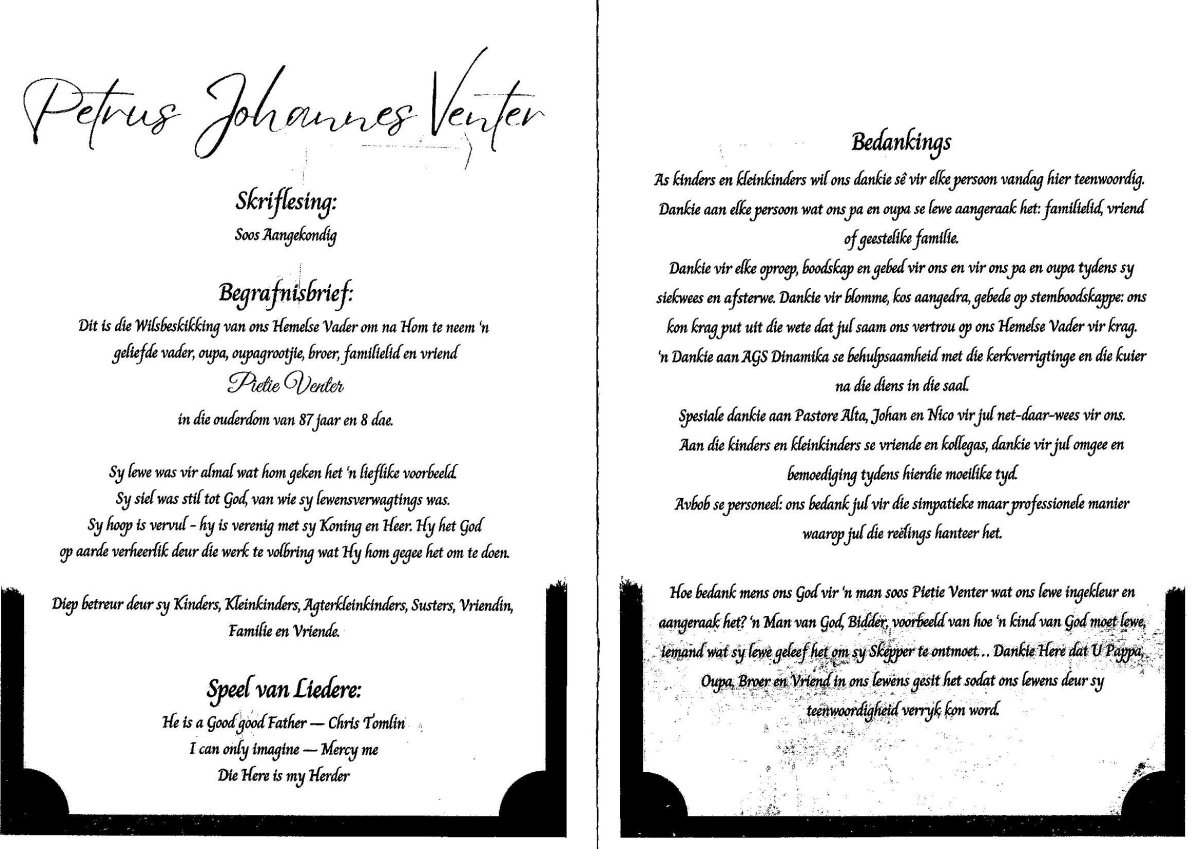 Petrus Johannes Venter
Skriflesing:
Soos Aangekondig
Begrafnisbrief:
Dit is die Wilsbeskikking van ons Hemelse Vader om na Hom te neem 'n
geliefde vader, oupa, oupagrootjie, broer, familielid en vriend
Pietie Venter
in die ouderdom van 87 jaar en 8 dae.
Sy lewe was vir almal wat hom geken het 'n lieflike voorbeeld.
Sy siel was stil tot God, van wie sy lewensverwagtings was.
Sy hoop is vervul - hy is verenig met sy Koning en Heer. Hy het God
op aarde verheerlik deur die werk te volbring wat Hy hom gegee het om te doen.
Diep betreur deur sy Kinders, Kleinkinders, Agterkleinkinders, Susters, Vriendin,
Familie en Vriende.
Speel van Liedere:
He is a Good good Father — Chris Tomlin
I can only imagine — Mercy me
Die Here is my Herder
Bedankings
As kinders en kleinkinders wil ons dankie sê vir elke persoon vandag hier teenwoordig.
Dankie aan elke persoon wat ons pa en oupa se lewe aangeraak het: familielid, vriend
of geestelike familie.
Dankie vir elke oproep, boodskap en gebed vir ons en vir ons pa en oupa tydens sy
siekwees en afsterwe. Dankie vir blomme, kos aangedra, gebede op stemboodskappe: ons
kon krag put uit die wete dat jul saam ons vertrou op ons Hemelse Vader vir krag.
'n Dankie aan AGS Dinamika se behulpsaamheid met die kerkverrigtinge en die kuier
na die diens in die saal.
Spesiale dankie aan Pastore Alta, Johan en Nico vir jul net-daar-wees vir ons.
Aan die kinders en kleinkinders se vriende en kollegas, dankie vir jul omgee en
bemoediging tydens hierdie moeilike tyd.
Avbob se personeel: ons bedank jul vir die simpatieke maar professionele manier
waarop jul die reëlings hanteer het.
Hoe bedank mens ons God vir 'n man soos Pietie Venter wat ons lewe ingekleur en
aangeraak het? 'n Man van God, Bidder, voorbeeld van hoe 'n kind van God moet lewe,
iemand wat sy lewe geleef het om sy Skepper te ontmoet... Dankie Here dat U Pappa,
Oupa, Broer en Vriend in ons lewens gesit het sodat ons lewens deur sy
teenwoordigheid verryk kon word.